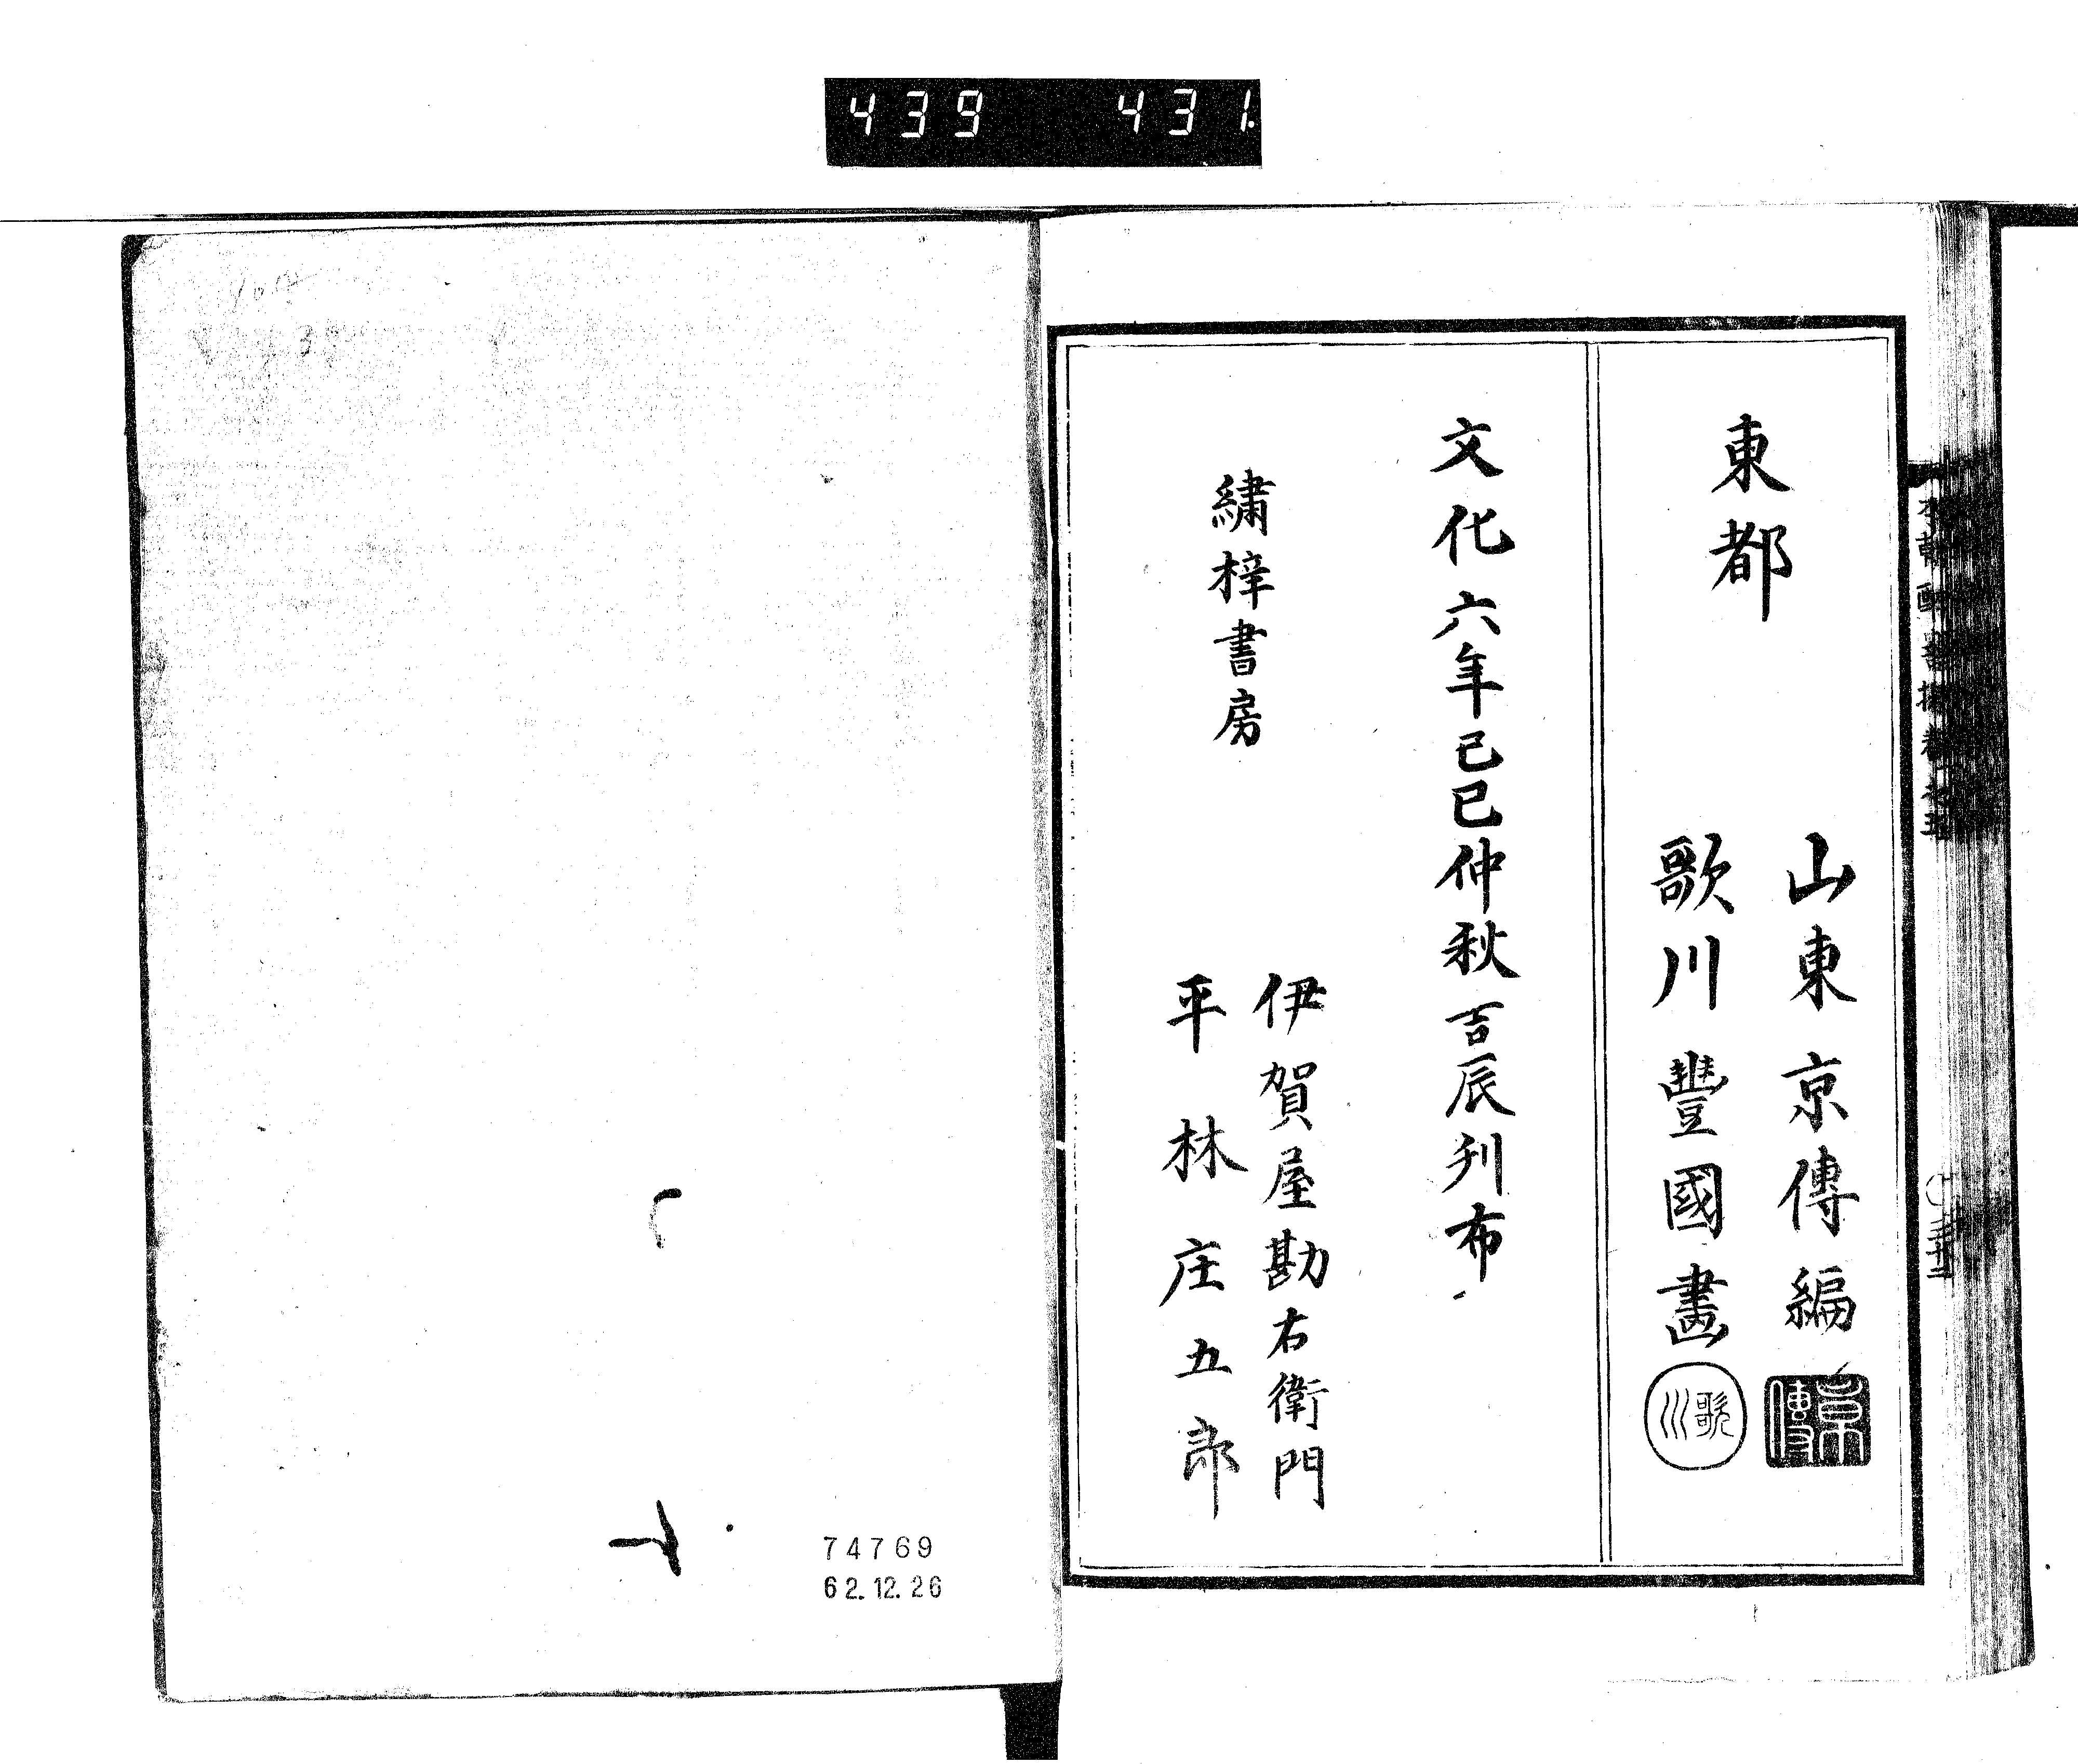 439 431.
東都
山東京傳編 京傳
歌川豐國畫 歌川
文化六年己巳仲秋吉辰刋布
繡梓書房
伊賀屋勘右衛門
平林庄五郎
74769
62.12.26